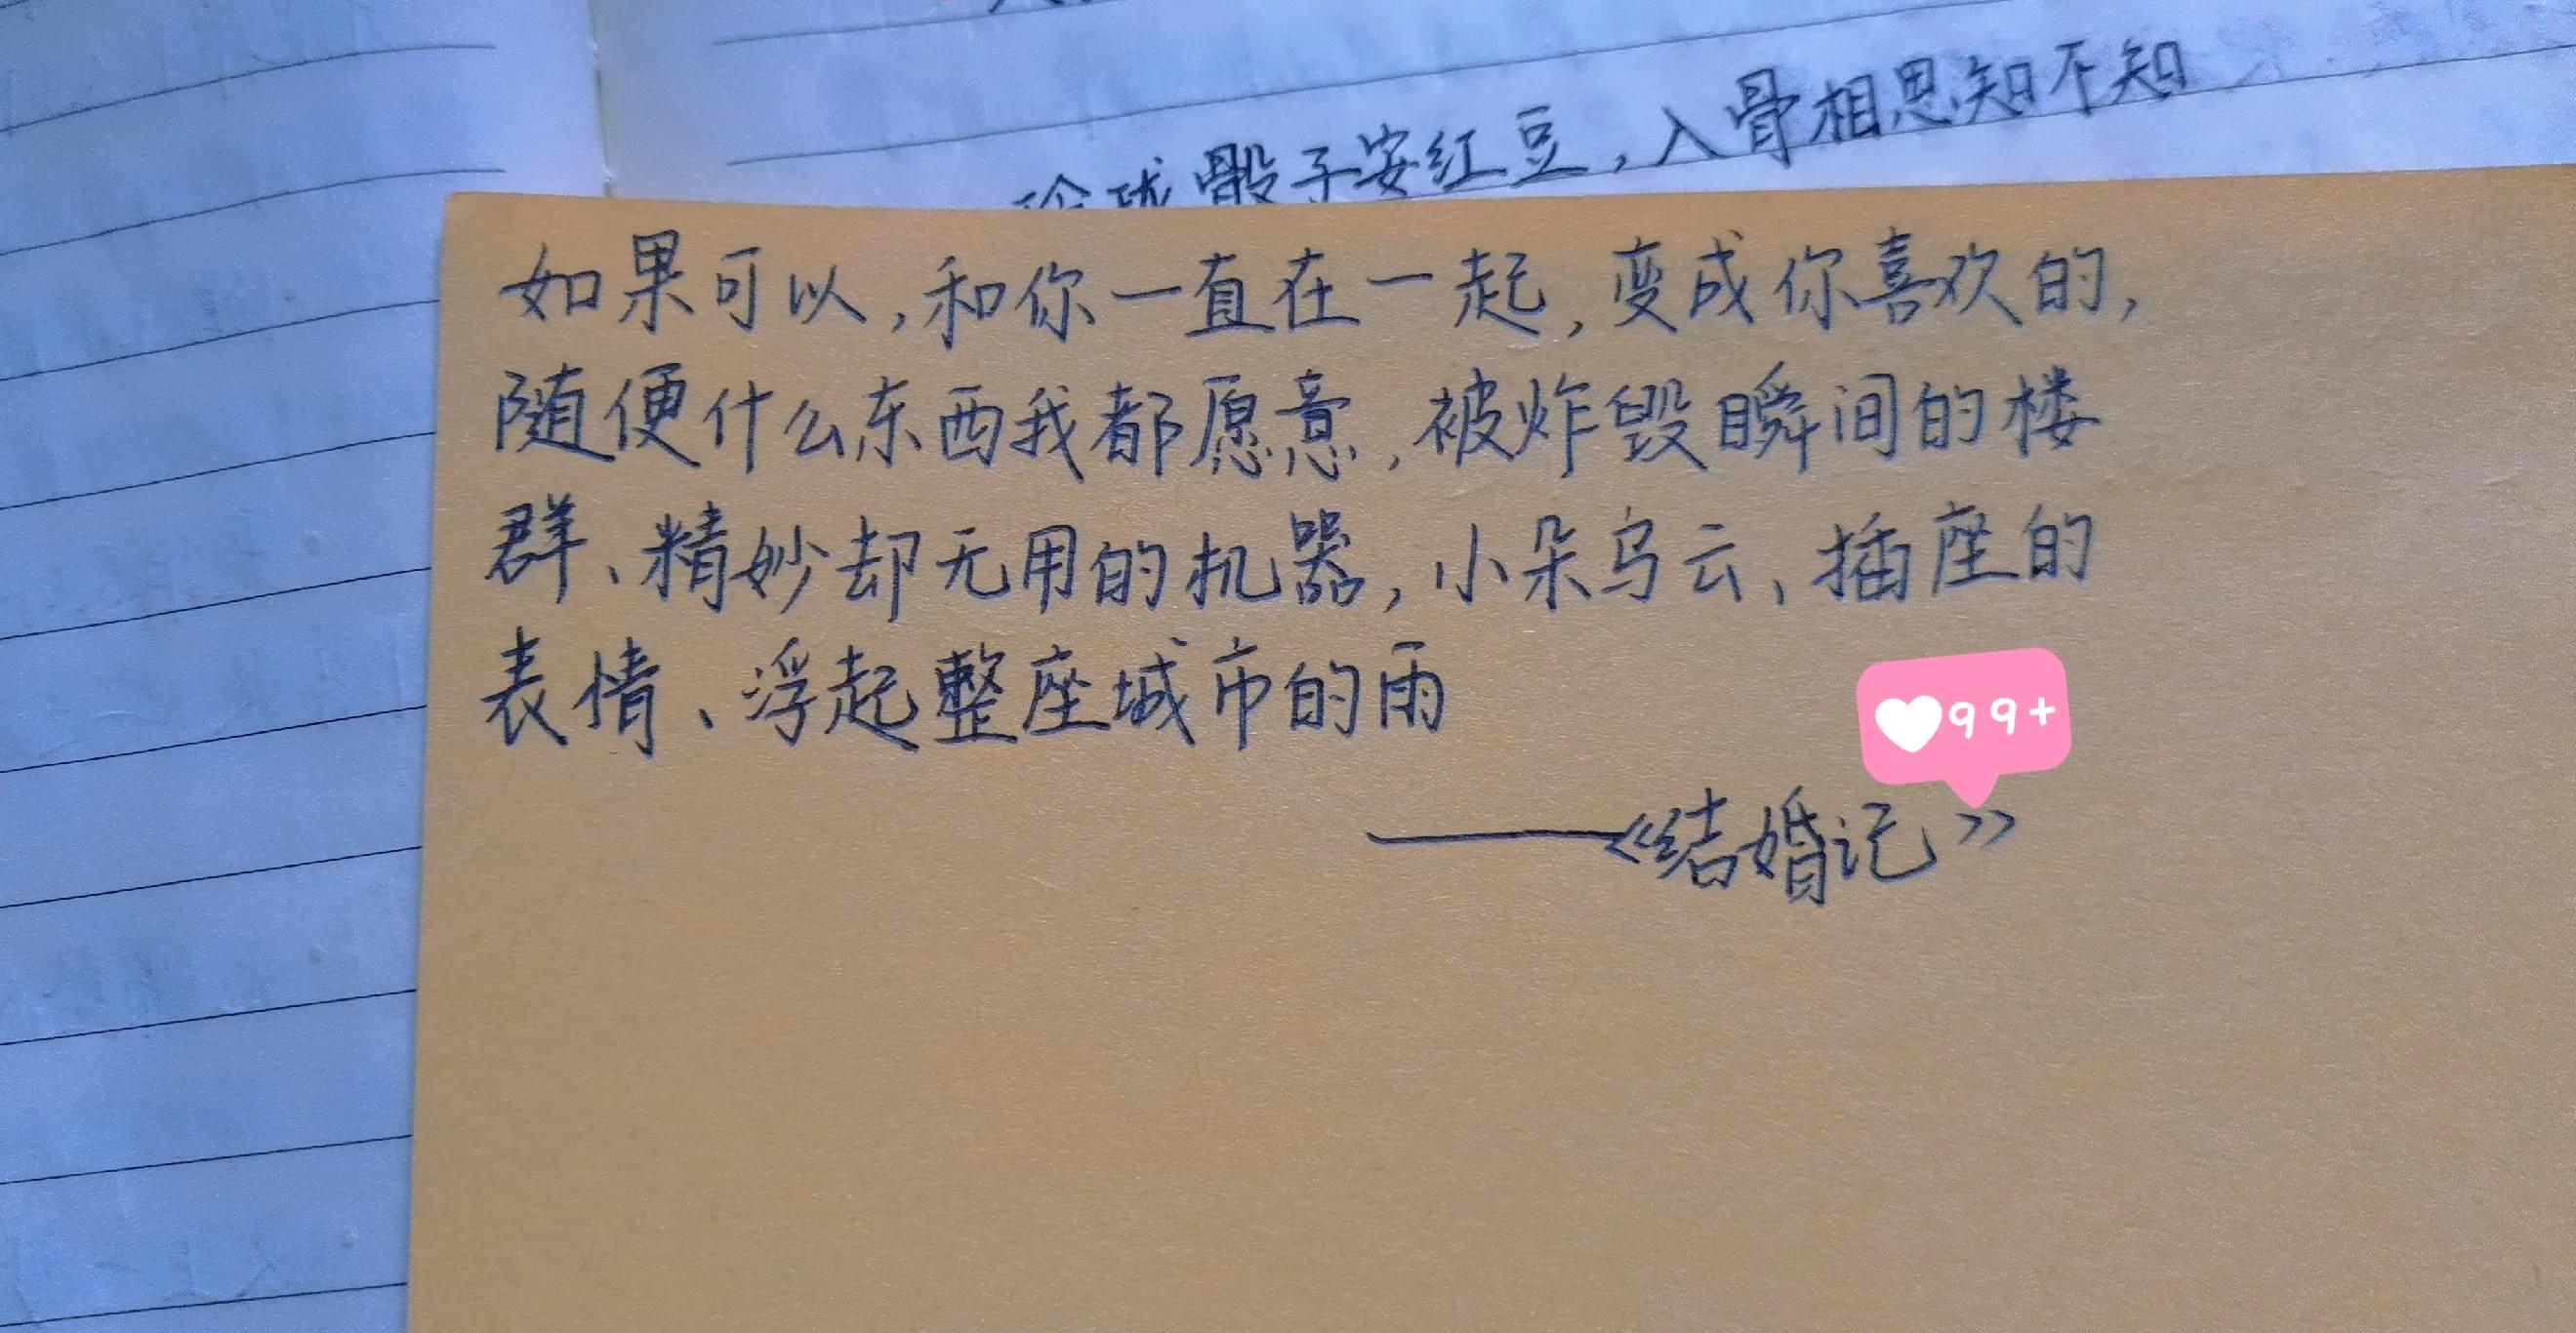 玲珑骰子安红豆，入骨相思知不知
如果可以，和你一直在一起，变成你喜欢的，
随便什么东西我都愿意，被炸毁瞬间的楼
群、精妙却无用的机器，小朵乌云、插座的
表情、浮起整座城市的雨
99+
——《结婚记》